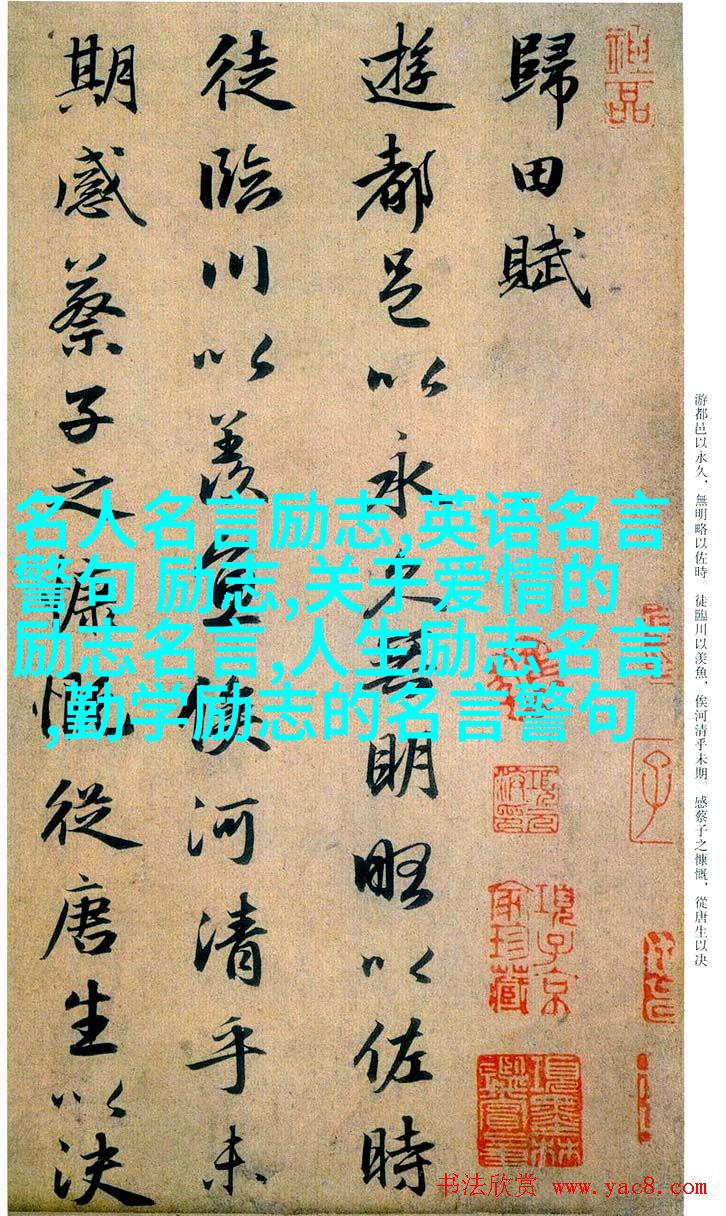 歸田賦
遊都邑以永久無明略以佐時
徒臨川以羨魚俟河清乎未
期感蔡子之慷慨從唐生以決
名人名言励志,英语名言
警句 励志,关于爱情的
励志名言,人生励志名言
,勤学励志的名言警句
游都邑以永久，無明略以佐時。徒臨川以羨魚，俟河清乎未期。感蔡子之慷慨，從唐生以决
神品
項子京家珍藏
项墨林鑑賞章
书法欣赏 www.yac8.com